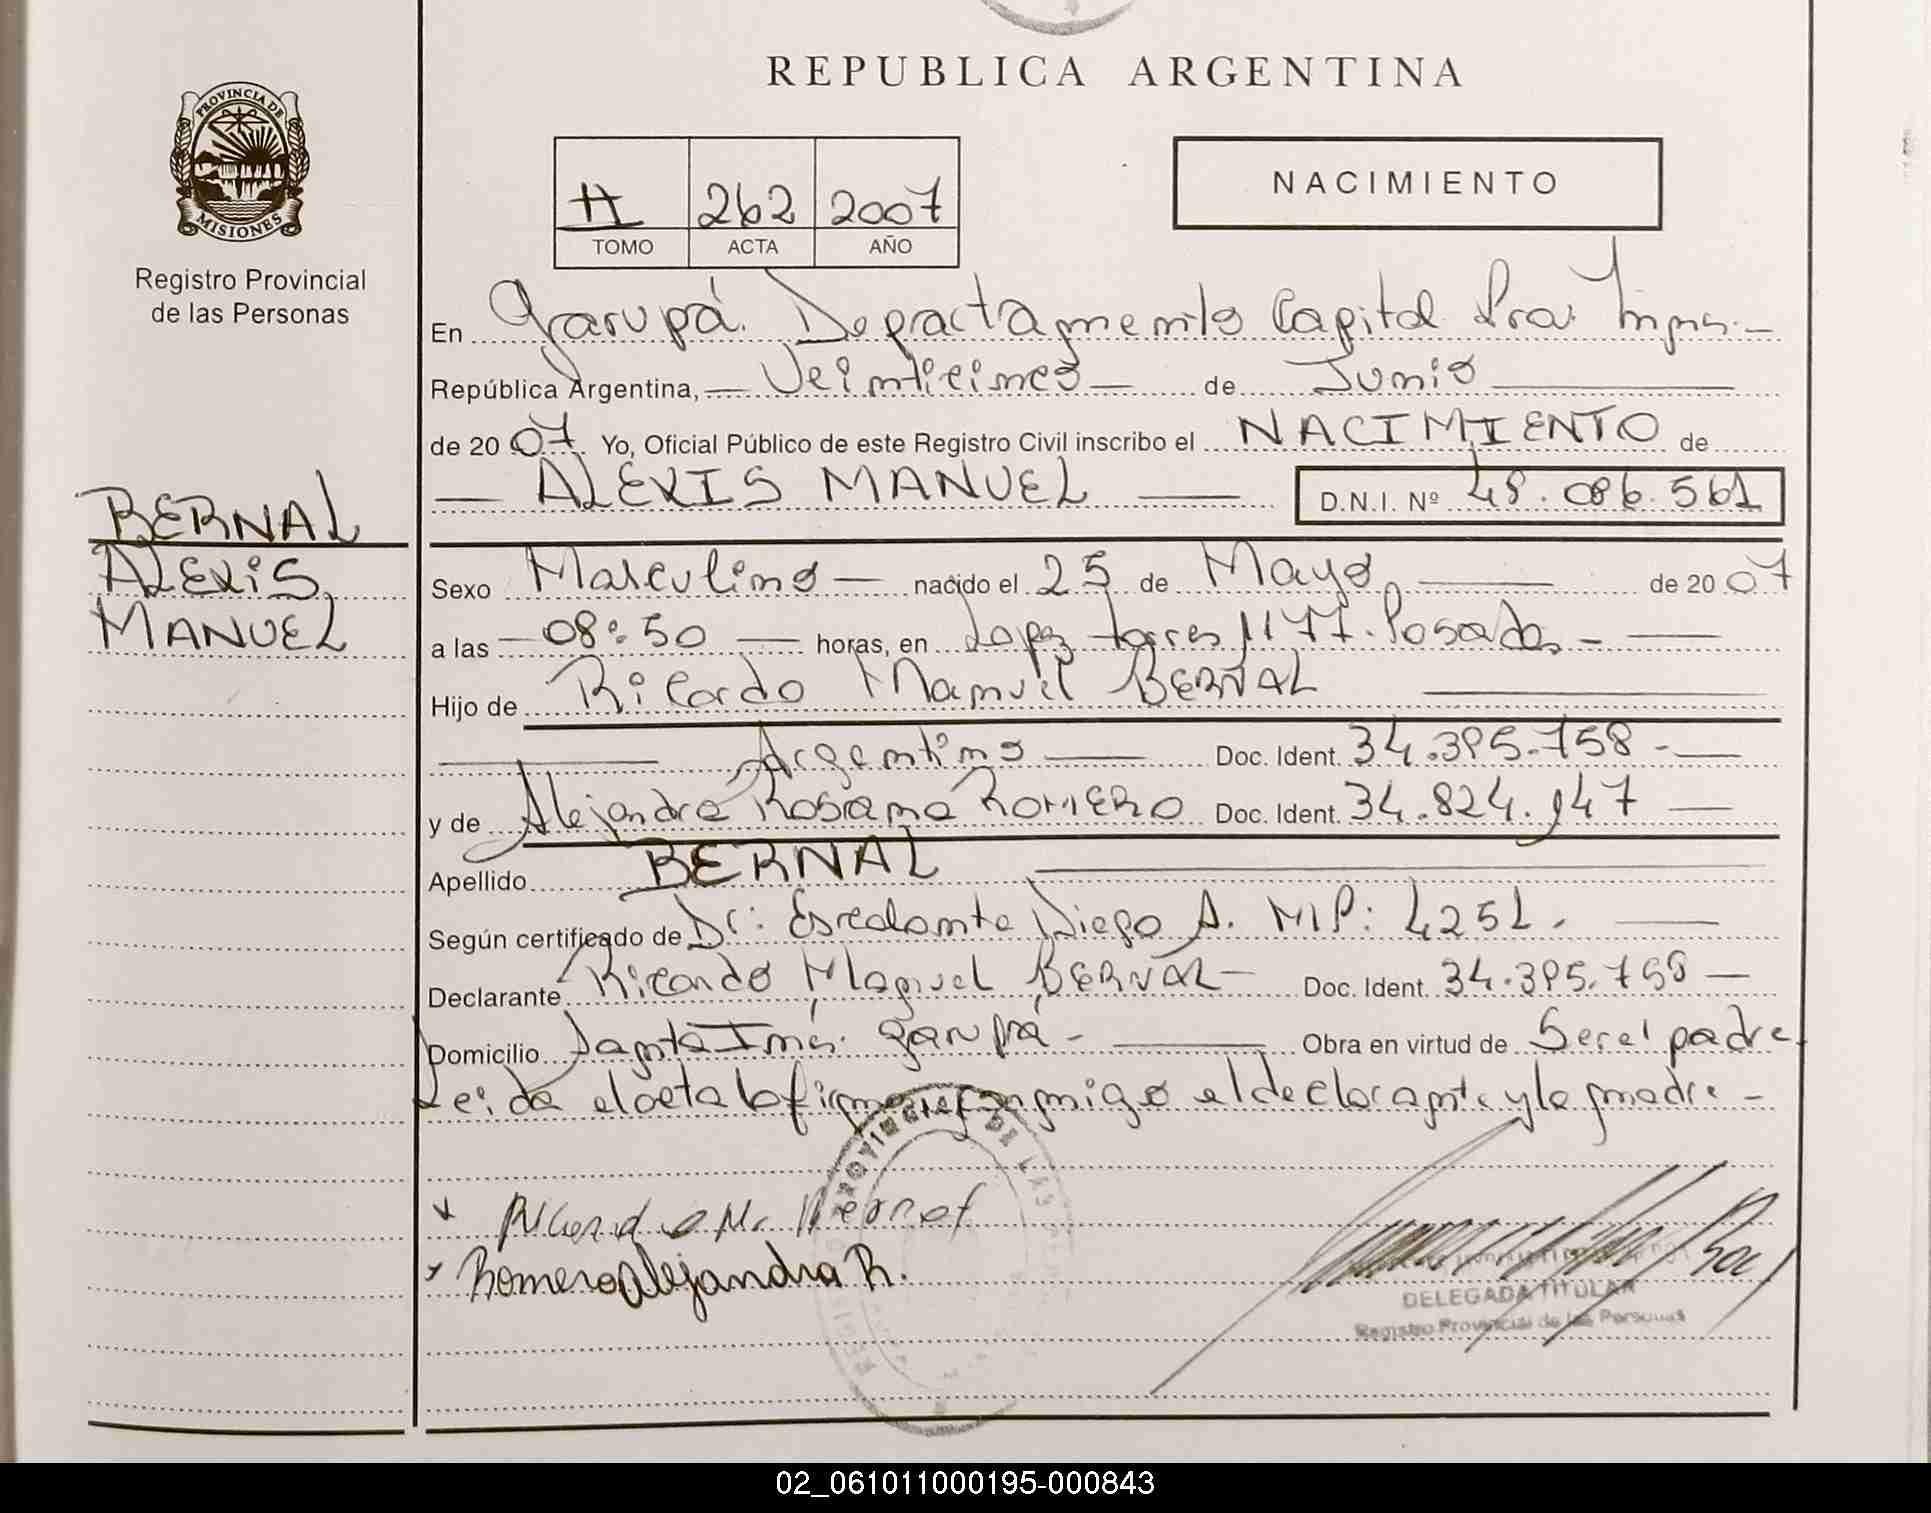 REPUBLICA ARGENTINA
PROVINCIA DE
MISIONES
Registro Provincial
de las Personas
II 262 2007
TOMO ACTA AÑO
NACIMIENTO
En Garupá. Departamento Capital Prov. Mnes.-
República Argentina, — Veinticinco — de Junio
de 2007. Yo, Oficial Público de este Registro Civil inscribo el NACIMIENTO de
— ALEXIS MANUEL — D.N.I. Nº 48.086.561
BERNAL
ALEXIS
MANUEL
Sexo Masculino — nacido el 25 de Mayo — de 2007
a las — 08:50 — horas, en Lopez torres 1177. Posadas - —
Hijo de Ricardo Manuel BERNAL —
— Argentino — Doc. Ident. 34.395.758 - —
y de Alejandra Rosana ROMERO Doc. Ident. 34.824.947 —
Apellido BERNAL —
Según certificado de Dr: Escalante Diego A. MP: 4251. —
Declarante Ricardo Manuel BERNAL — Doc. Ident. 34.395.758 —
Domicilio Santa Inés. Garupá - — Obra en virtud de Ser el padre
Leida el acta la firman conmigo el declarante y la madre -
PROVINCIAL DE LAS
x Ricardo M. Bernal
x Romero Alejandra R.
DELEGADA TITULAR
Registro Provincial de las Personas
02_061011000195-000843